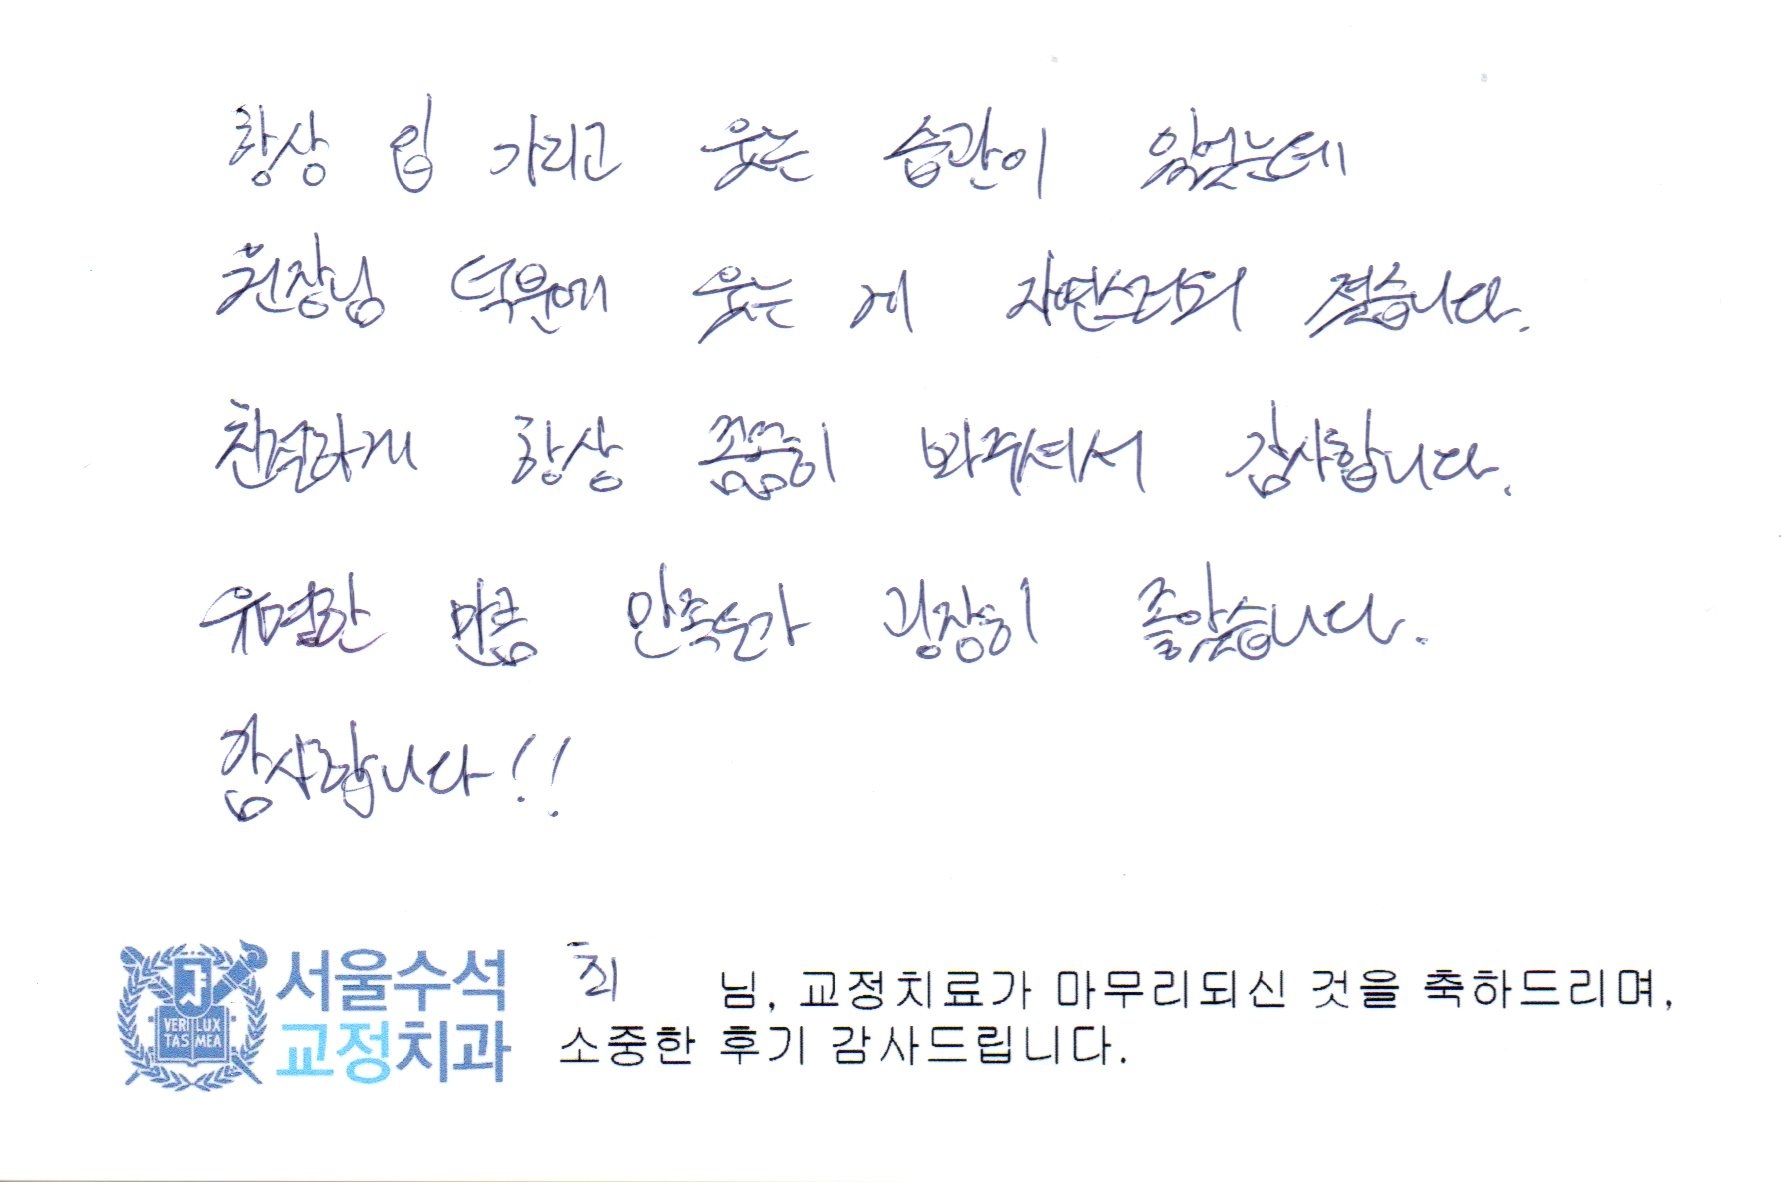 항상 입 가리고 웃는 습관이 있었는데
원장님 덕분에 웃는 게 자연스러워 졌습니다.
친절하게 항상 꼼꼼히 봐주셔서 감사합니다.
유명한 만큼 만족도가 굉장히 좋았습니다.
감사합니다!!
서울수석
교정치과
VERI LUX
TAS MEA
최 님, 교정치료가 마무리되신 것을 축하드리며,
소중한 후기 감사드립니다.